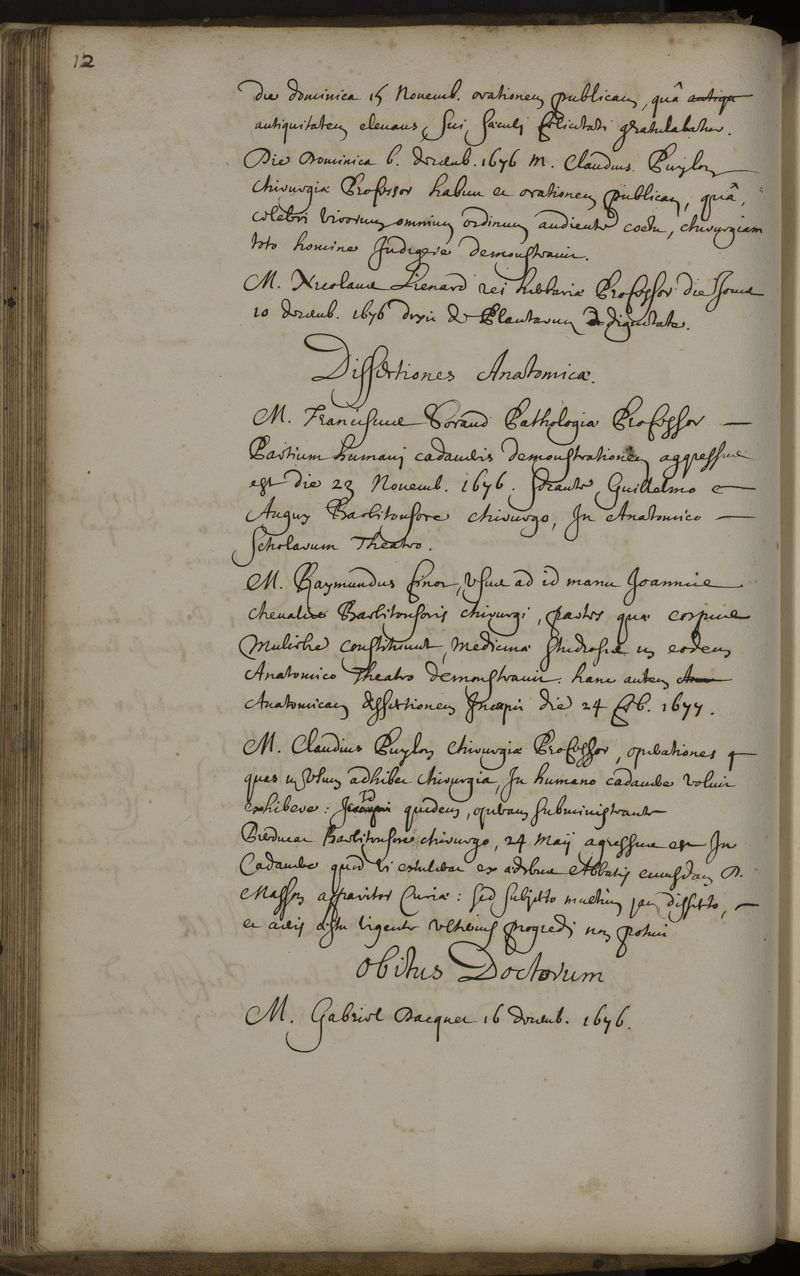 12
die dominica 15 Novemb. orationem publicam, quâ antiqu
antiquitatem elevans, sui sæculi felicitati gratulabatur.
Die Dominica 6. decemb. 1676 M. Claudius Puylon
chirurgiæ Professor habuit orationem publicam, quâ,
celebri virorum omnium ordinum audiente coetu, chirurgiam
toto homine indigere demonstravit.
M. Nicolaus Lienard rei herbariæ Professor die Jovis
10 decemb. 1676 dixit de Plantarum dignitate.
Dissectiones Anatomicæ.
M. Franciscus Pathologiæ Professor
Partium humani cadaveris demonstrationem aggressus
est die 23 Novemb. 1676. secante Guillelmo
Barbitonsore chirurgo, in Anatomico
Scholarum Theatro.
M. Raymundus finot, usus ad id manu Joannis
chevalier Barbitonsoris chirurgi, partes quæ corpus
Muliebre constituunt, Medicinæ studiosis in eodem
Anatomico Theatro demonstravit. hanc autem
Anatomicam dissectionem incepit die 24 feb. 1677.
M. Claudius Puylon chirurgiæ Professor, operationes
quas in usum adhibet chirurgia, in humano cadavere voluit
exhibere: id quidem, operam subministrante
Barbitonsore chirurgo, 24 Maij agressus est in
Cadavere quod ex ædibus Abbatis cuiusdam D.
Masson apparitor Curiæ: sed subjecto multum jam dissecto,
et aeris æstu vigente ulterius progredi non potuit
Obitus Doctorum
M. Gabriel Dacquet 16 decemb. 1676.